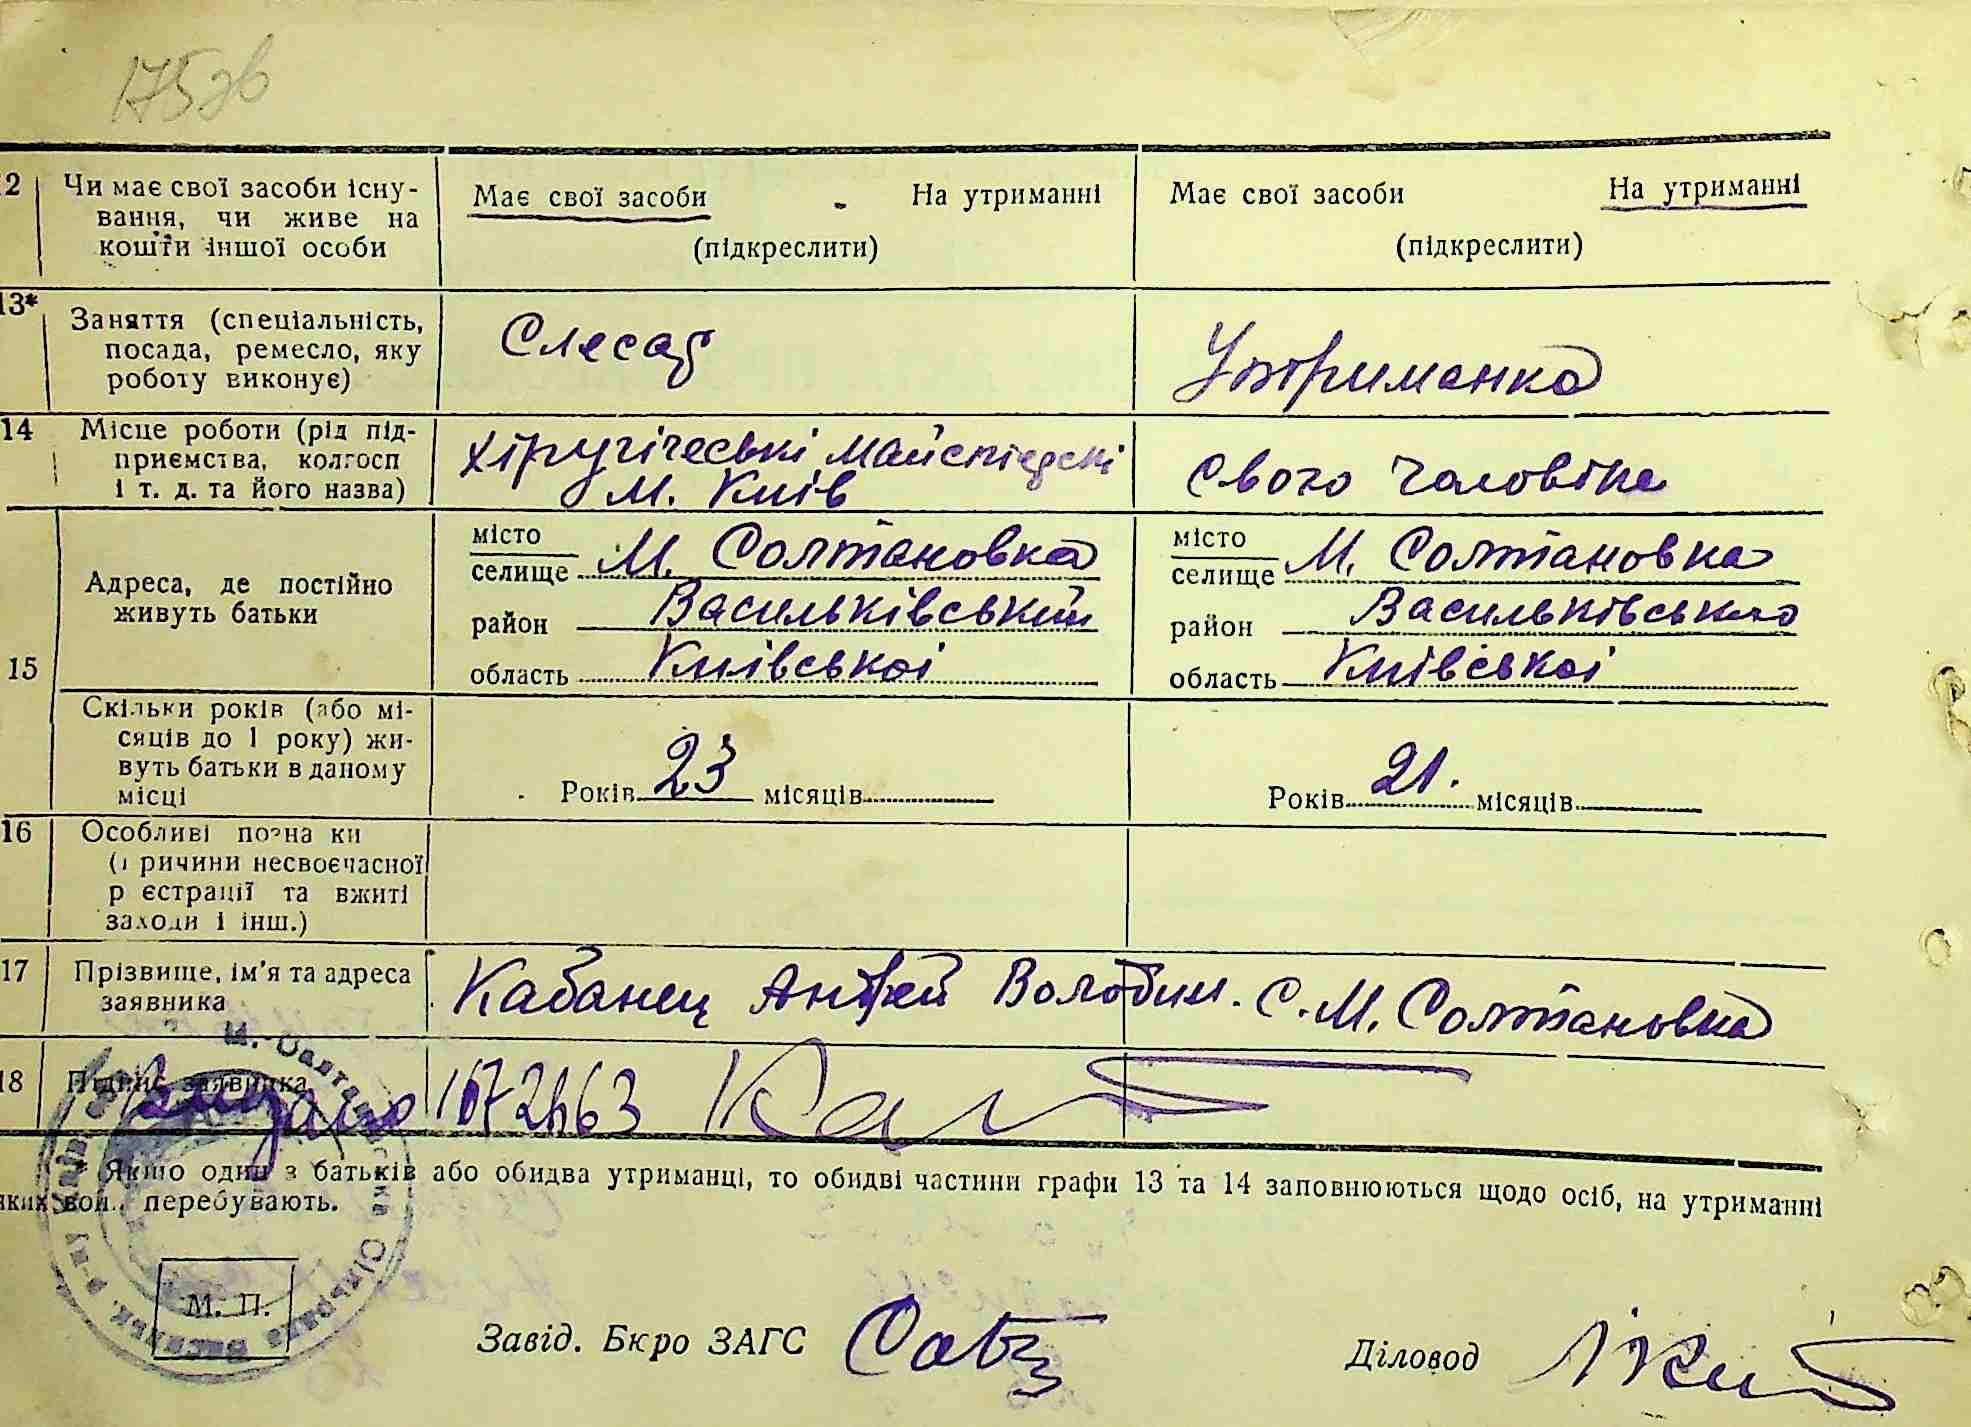 175зв
12 Чи має свої засоби існу-
вання, чи живе на
кошти іншої особи
Має свої засоби - На утриманні
(підкреслити)
Має свої засоби На утриманні
(підкреслити)
13* Заняття (спеціальність,
посада, ремесло, яку
роботу виконує)
Слесар
Утриманка
14 Місце роботи (рід під-
приємства, колгосп
і т. д. та його назва)
хіругічеські
м. Київ
свого чоловіка
15 Адреса, де постійно
живуть батьки
місто
селище М. Солтановка
район Васильківський
область Київської
місто
селище М. Солтановка
район Васильківського
область Київської
Скільки років (або мі-
сяців до 1 року) жи-
вуть батьки в даному
місці
Років 23 місяців
Років 21. місяців
16 Особливі позна ки
(причини несвоєчасної
р єстрації та вжиті
заходи і інш.)
17 Прізвище, ім'я та адреса
заявника
Кабанец Андрей Володим. С. М. Солтановка
18 Підпис заявника
* Якшо один з батьків або обидва утриманці, то обидві частини графи 13 та 14 заповнюються щодо осіб, на утриманні
яких вон. перебувають.
М. П.
Завід. Бюро ЗАГС
Діловод